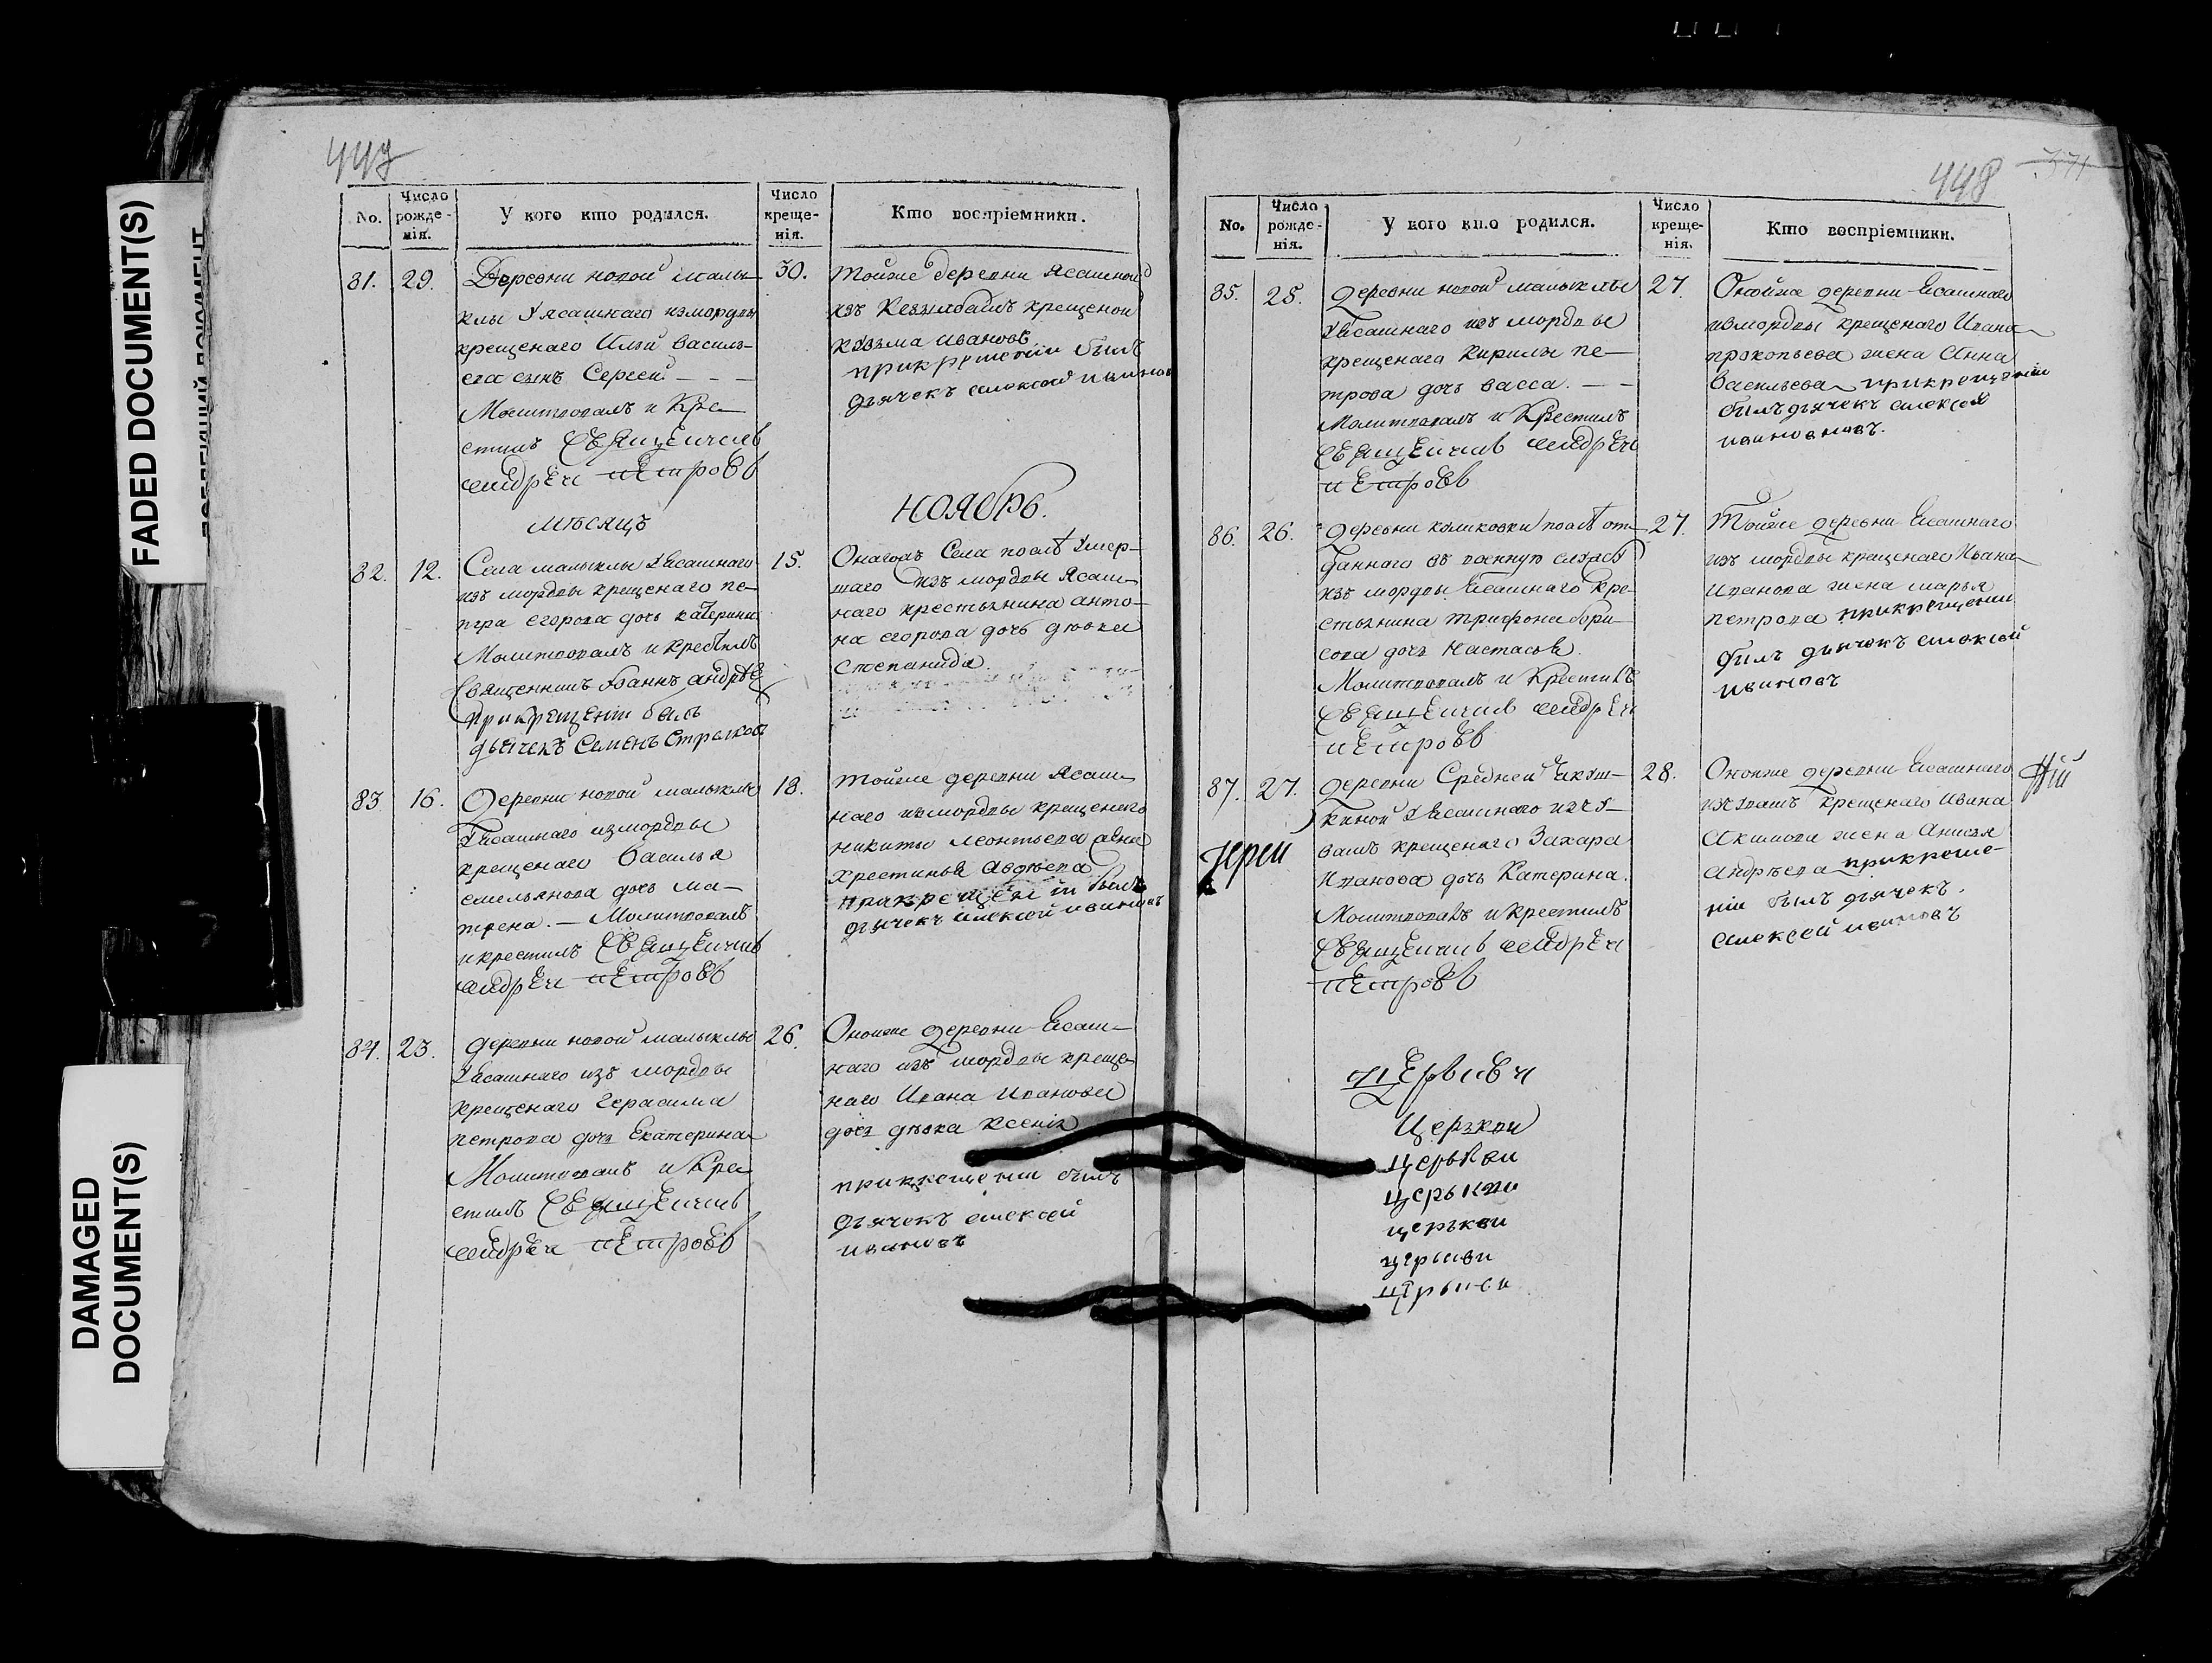 FADED DOCUMENT(S)
DAMAGED
DOCUMENT(S)
447
No.
Число
рожде-
нія.
У кого кто родился.
Число
креще-
нія.
Кто воспріемники.
81.
29.
Деревни новой малы-
клы Уясашнаго измордвы
крещенаго Ильи Василь-
ева сынъ Сергей. - - -
Молитвовалъ и Кре-
стилъ Священникъ
Андрей Петровъ
30.
Тойже деревни Ясашной
изъ крещеной
Козьма Ивановъ
прикрещении былъ
дьячекъ алексей ивановъ
мѣсяцъ
ноябрь.
82.
12.
Села малыклы Уясашнаго
изъ мордвы крещенаго пе-
тра егорова дочь катерина
Молитвовалъ и крестилъ
Священникъ Іоаннъ андрѣе
прикрещеніи былъ
дьячекъ Семенъ
15.
Онагожъ Села послѣ Умер-
шаго изъ мордвы Ясаш-
наго крестьянина анто-
на егорова дочь дѣвка
Степанида.
83
16.
Деревни новой малыклы
Уясашнаго измордвы
крещенаго Василья
емельянова дочь ма-
трена. - Молитвовалъ
икрестилъ Священникъ
Андрей Петровъ
18.
Тойже деревни Ясаш-
наго измордвы крещенаго
никиты леонтьева жена
Хрестинья Авдѣева
прикрещеніи былъ
дьячекъ алексей ивановъ
84.
23.
деревни новой малыклы
Уясашнаго изъ мордвы
крещенаго Герасима
петрова дочь Екатерина
Молитвовалъ и Кре-
стилъ Священникъ
Андрей Петровъ
26.
Оноиже деревни Ясаш-
наго изъ мордвы креще-
наго Ивана Иванова
дочь дѣвка Ксенія
прикрещении былъ
дьячекъ алексей
ивановъ
448
371
No.
Число
рожде-
нія.
У кого кто родился.
Число
креще-
нія.
Кто воспріемники.
85.
25.
деревни новой малыклы
Уясашнаго изъ мордвы
крещенаго Кирилы пе-
трова дочь васса. - -
Молитвовалъ и Крестилъ
Священникъ Андрей
Петровъ
27.
Онойже деревни Ясашнаго
измордвы крещенаго Ивана
прокопьева жена Анна
Васильева прикрещеніи
былъ дьячекъ алексей
ивановъ.
86.
26.
деревни куликовки послѣ от-
даннаго въ военную службу
изъ мордвы Ясашнаго кре-
стьянина трифона бори-
сова дочь Настасья.
Молитвовалъ и Крестилъ
Священникъ Андрей
Петровъ
27.
Тойже деревни Ясашнаго
изъ мордвы крещенаго Ивана
Иванова жена марья
петрова прикрещении
былъ дьячекъ алексей
ивановъ
87.
27.
Іереи
деревни Средней Якуш-
киной Уясашнаго изъчу-
вашъ крещенаго Захара
Иванова дочь Катерина.
Молитвовалъ и крестилъ
Священникъ Андрей
Петровъ
28.
Оноиже деревни Ясашнаго
изъчувашъ крещенаго Ивана
Акимова жена Анисья
Андрѣева прикреще-
ніи былъ дьячекъ.
Алексей ивановъ
Церкви
Церкви
церькви
церькви
церькви